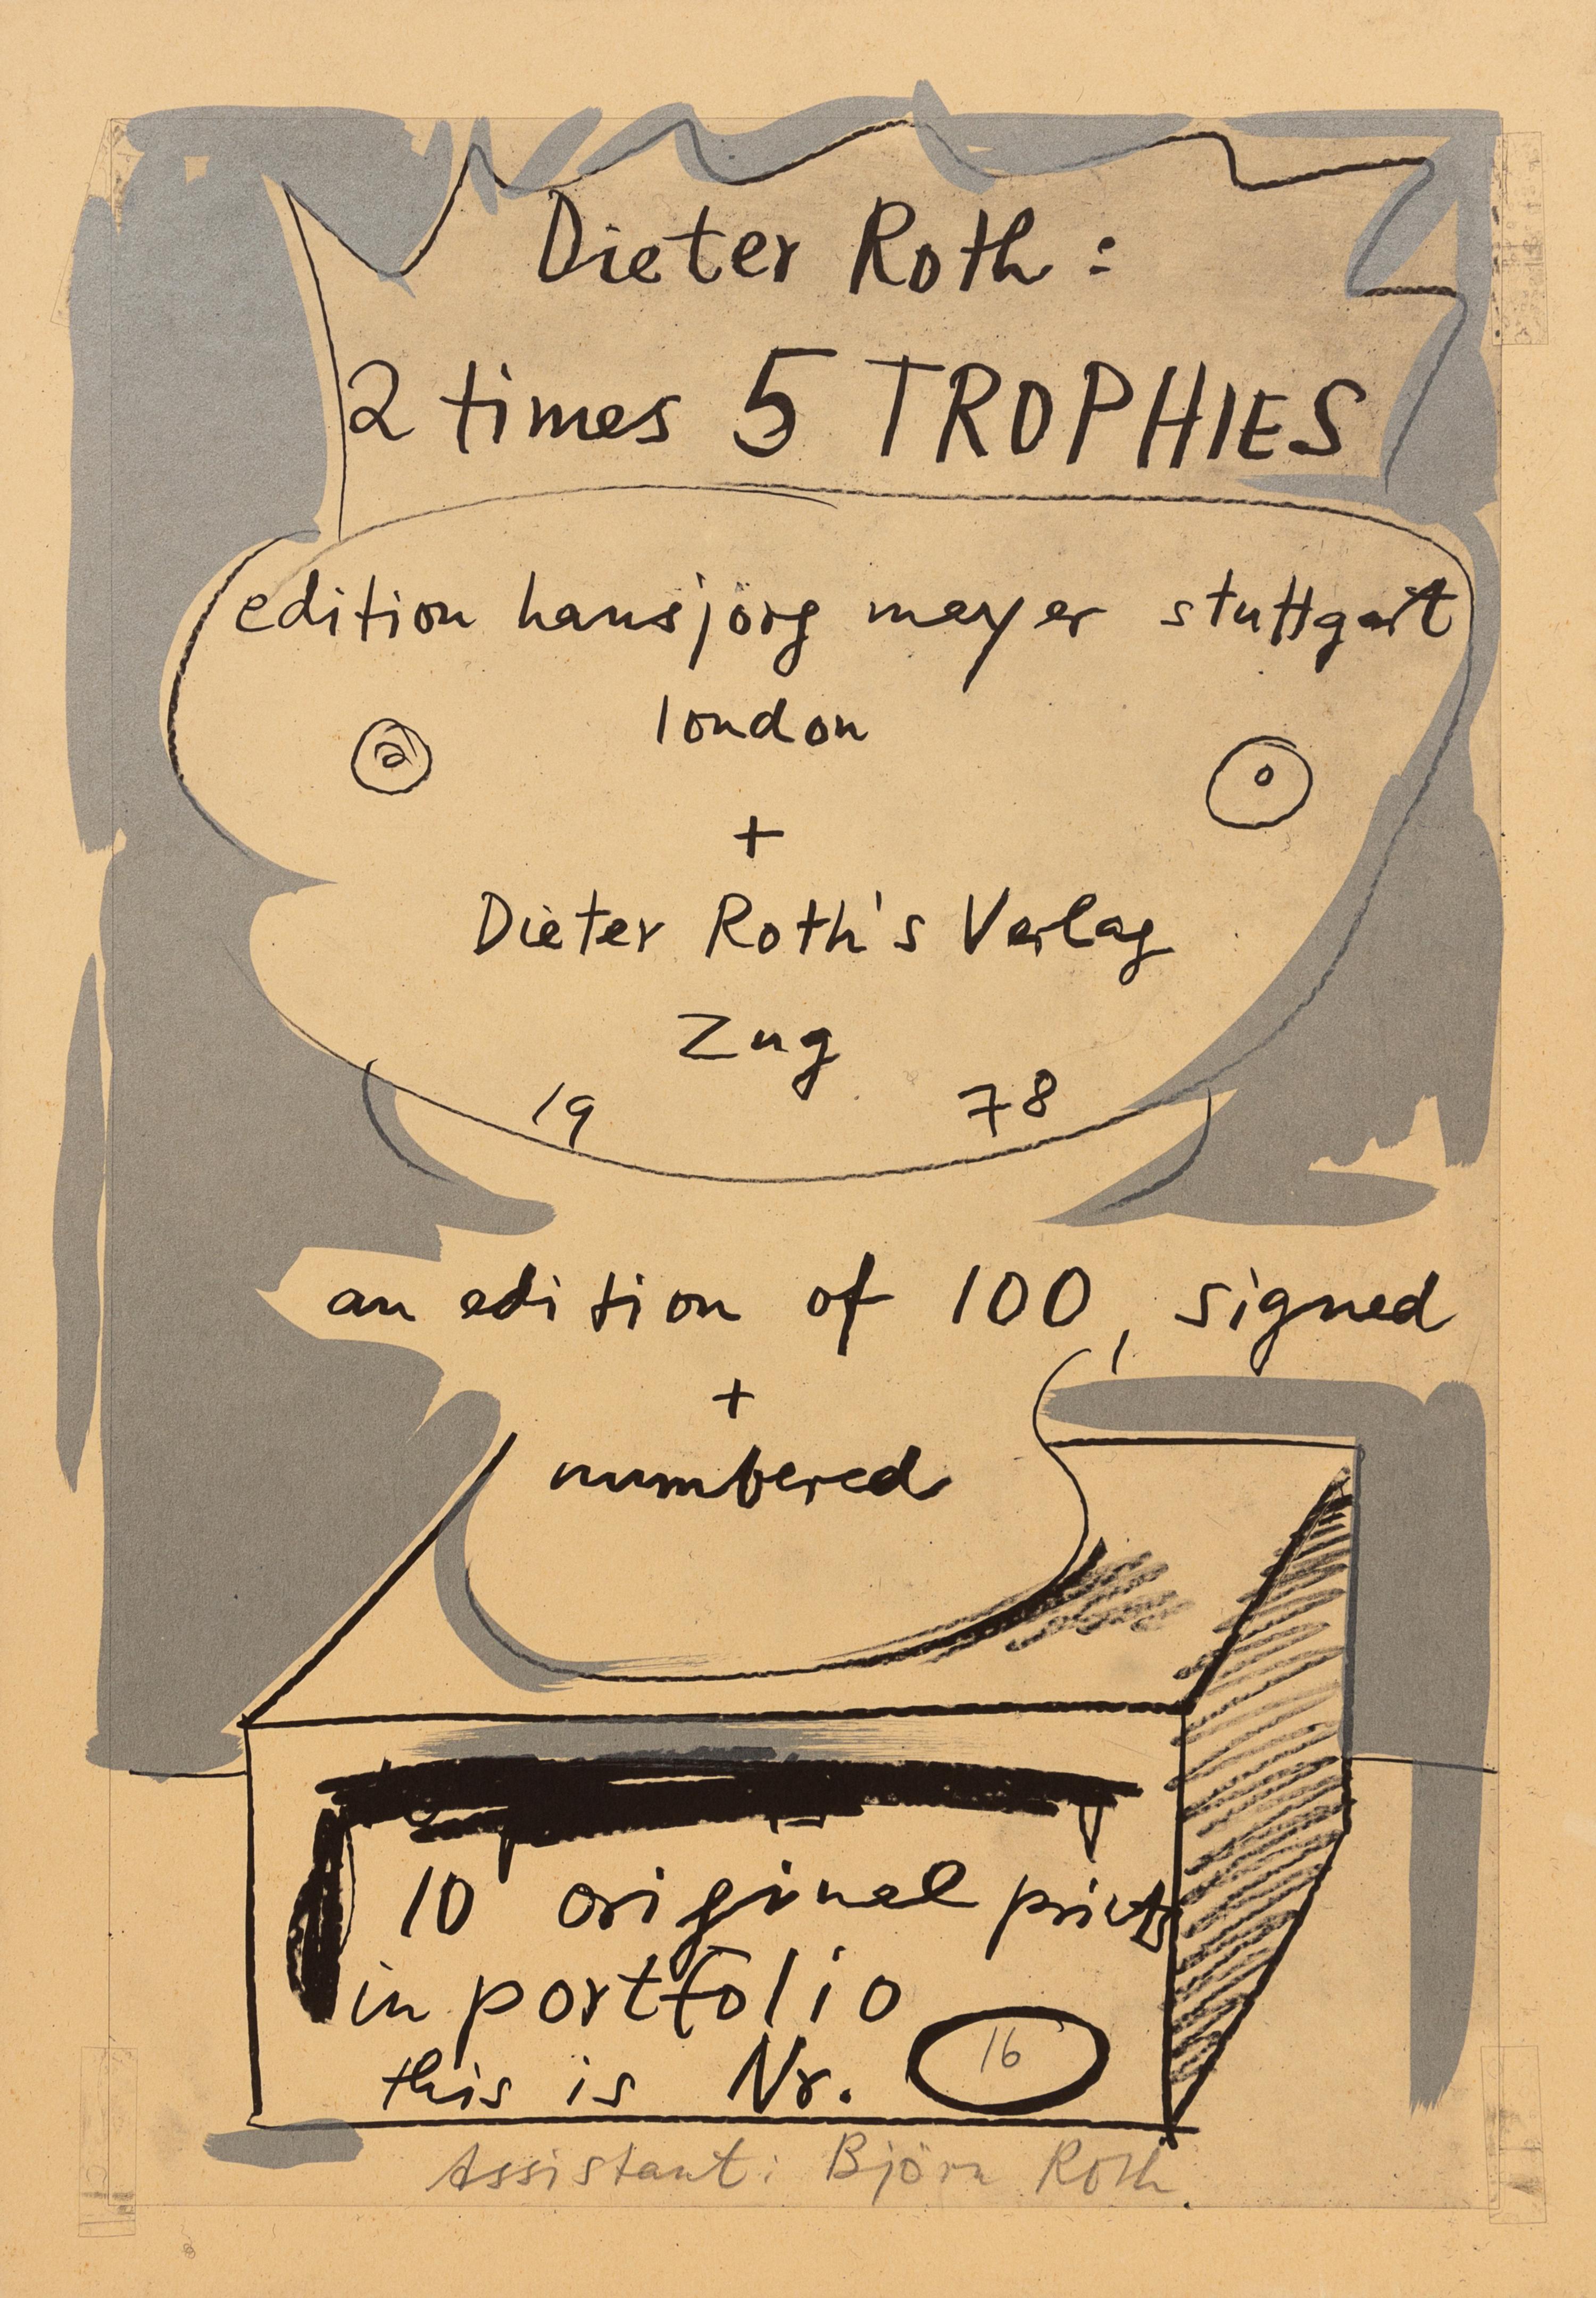 Dieter Roth:
2 times 5 TROPHIES
edition hansjörg mayer stuttgart
london
+
Dieter Roth's Verlag
Zug
19 78
an edition of 100, signed
+
numbered
10 original prints
in portfolio
this is Nr. 16
Assistant: Björn Roth.